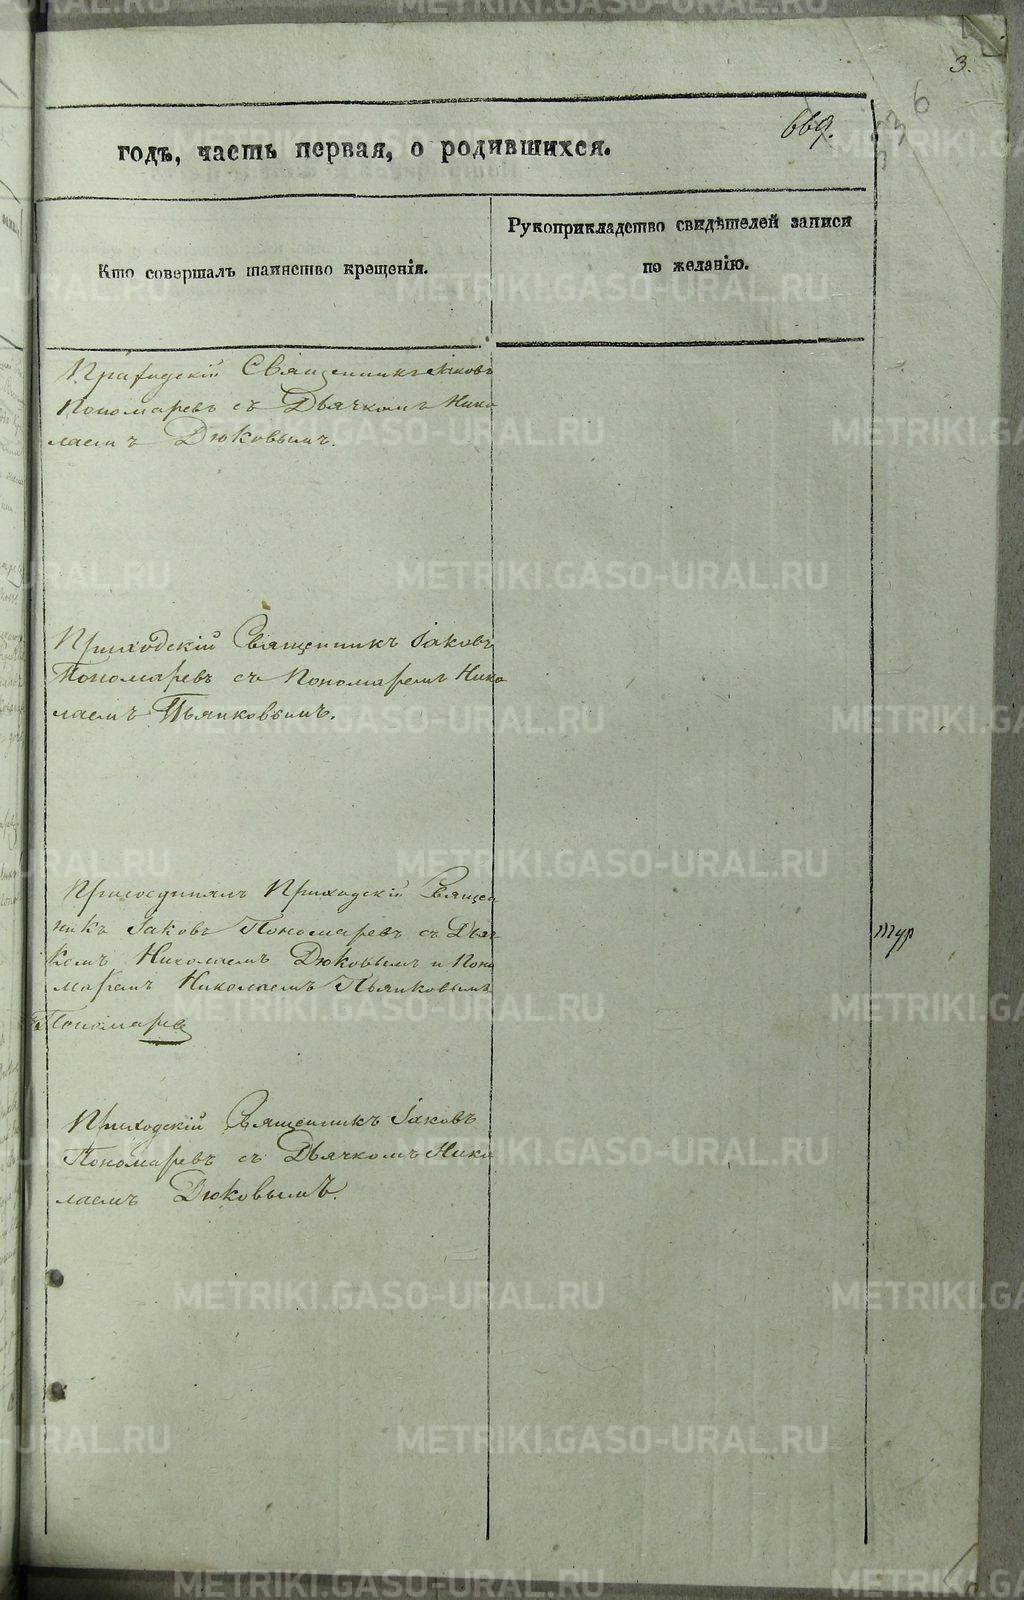 3.
669.
336
годъ, часть первая, о родившихся.
Кто совершалъ таинство крещенія.
Рукоприкладство свидѣтелей записи
по желанію.
Приходскій Священникъ Іаковъ
Пономаревъ съ Дьячкомъ Нико
лаемъ Дюковымъ.
Приходскій Священникъ Іаковъ
Пономаревъ съ Пономаремъ Нико
лаемъ Пьянковымъ.
Присоединялъ Приходскій Священ
никъ Іаковъ Пономаревъ съ Дьяч
комъ Николаемъ Дюковымъ и Поно
маремъ Николаемъ Пьянковымъ
Пономарев
Приходскій Священникъ Іаковъ
Пономаревъ съ Дьячкомъ Нико
лаемъ Дюковымъ.
тур
METRIKI.GASO-URAL.RU